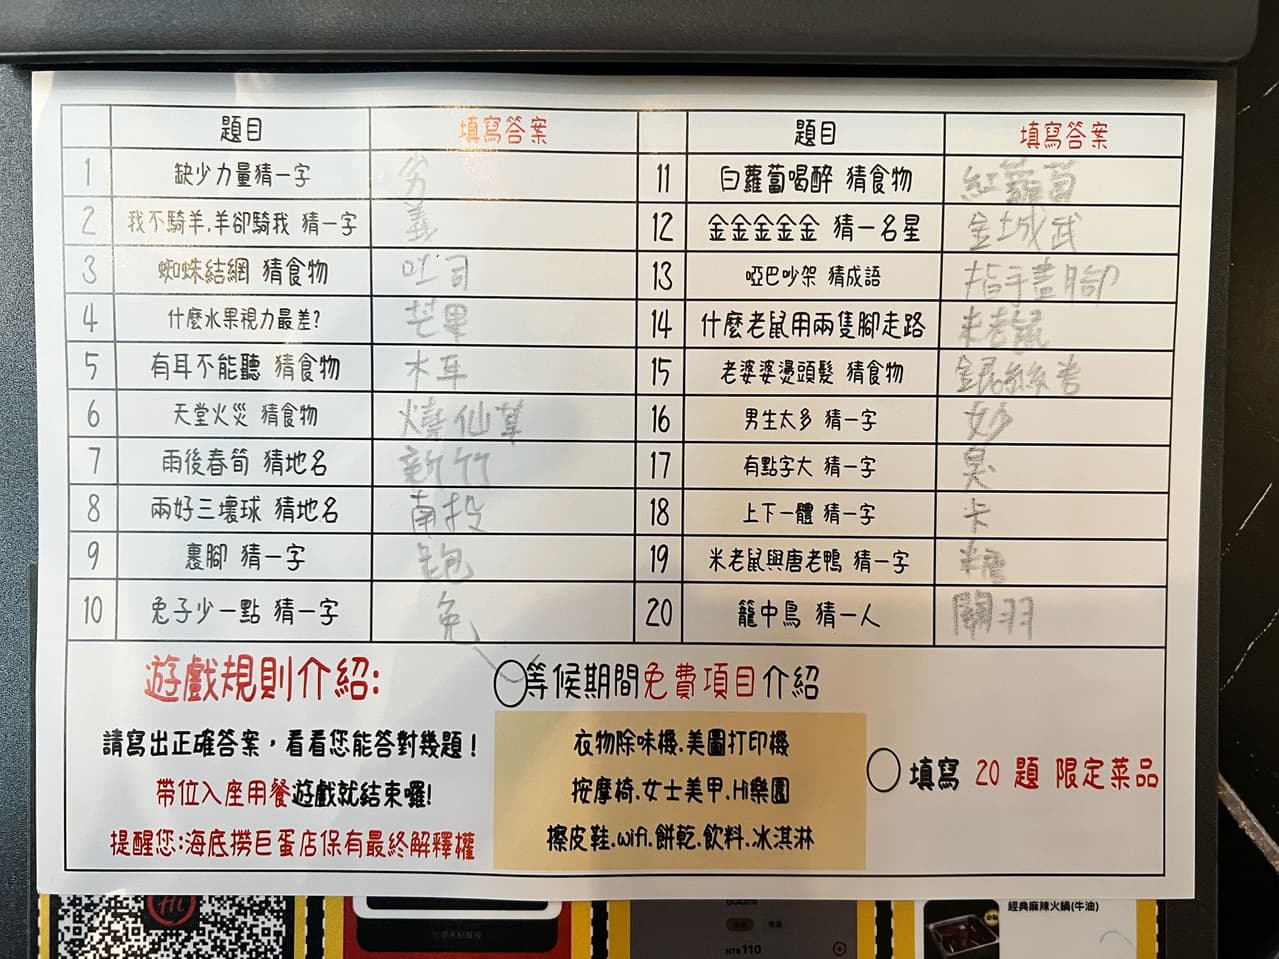 題目 填寫答案 題目 填寫答案
1 缺少力量猜一字 劣 11 白蘿蔔喝醉 猜食物 紅蘿蔔
2 我不騎羊.羊卻騎我 猜一字 義 12 金金金金金 猜一名星 金城武
3 蜘蛛結網 猜食物 吐司 13 啞巴吵架 猜成語 指手畫腳
4 什麼水果視力最差? 芒果 14 什麼老鼠用兩隻腳走路 米老鼠
5 有耳不能聽 猜食物 木耳 15 老婆婆燙頭髮 猜食物 銀絲卷
6 天堂火災 猜食物 燒仙草 16 男生太多 猜一字 妙
7 雨後春筍 猜地名 新竹 17 有點字大 猜一字 臭
8 兩好三壞球 猜地名 南投 18 上下一體 猜一字 卡
9 裹腳 猜一字 跑 19 米老鼠與唐老鴨 猜一字 糯
10 兔子少一點 猜一字 免 20 籠中鳥 猜一人 關羽
遊戲規則介紹:
請寫出正確答案，看看您能答對幾題！
帶位入座用餐遊戲就結束囉!
提醒您:海底撈巨蛋店保有最終解釋權
等候期間免費項目介紹
衣物除味機.美圖打印機
按摩椅.女士美甲.Hi樂園
擦皮鞋.wifi.餅乾.飲料.冰淇淋
填寫 20 題 限定菜品
Hi
NT$110
經典麻辣火鍋(牛油)